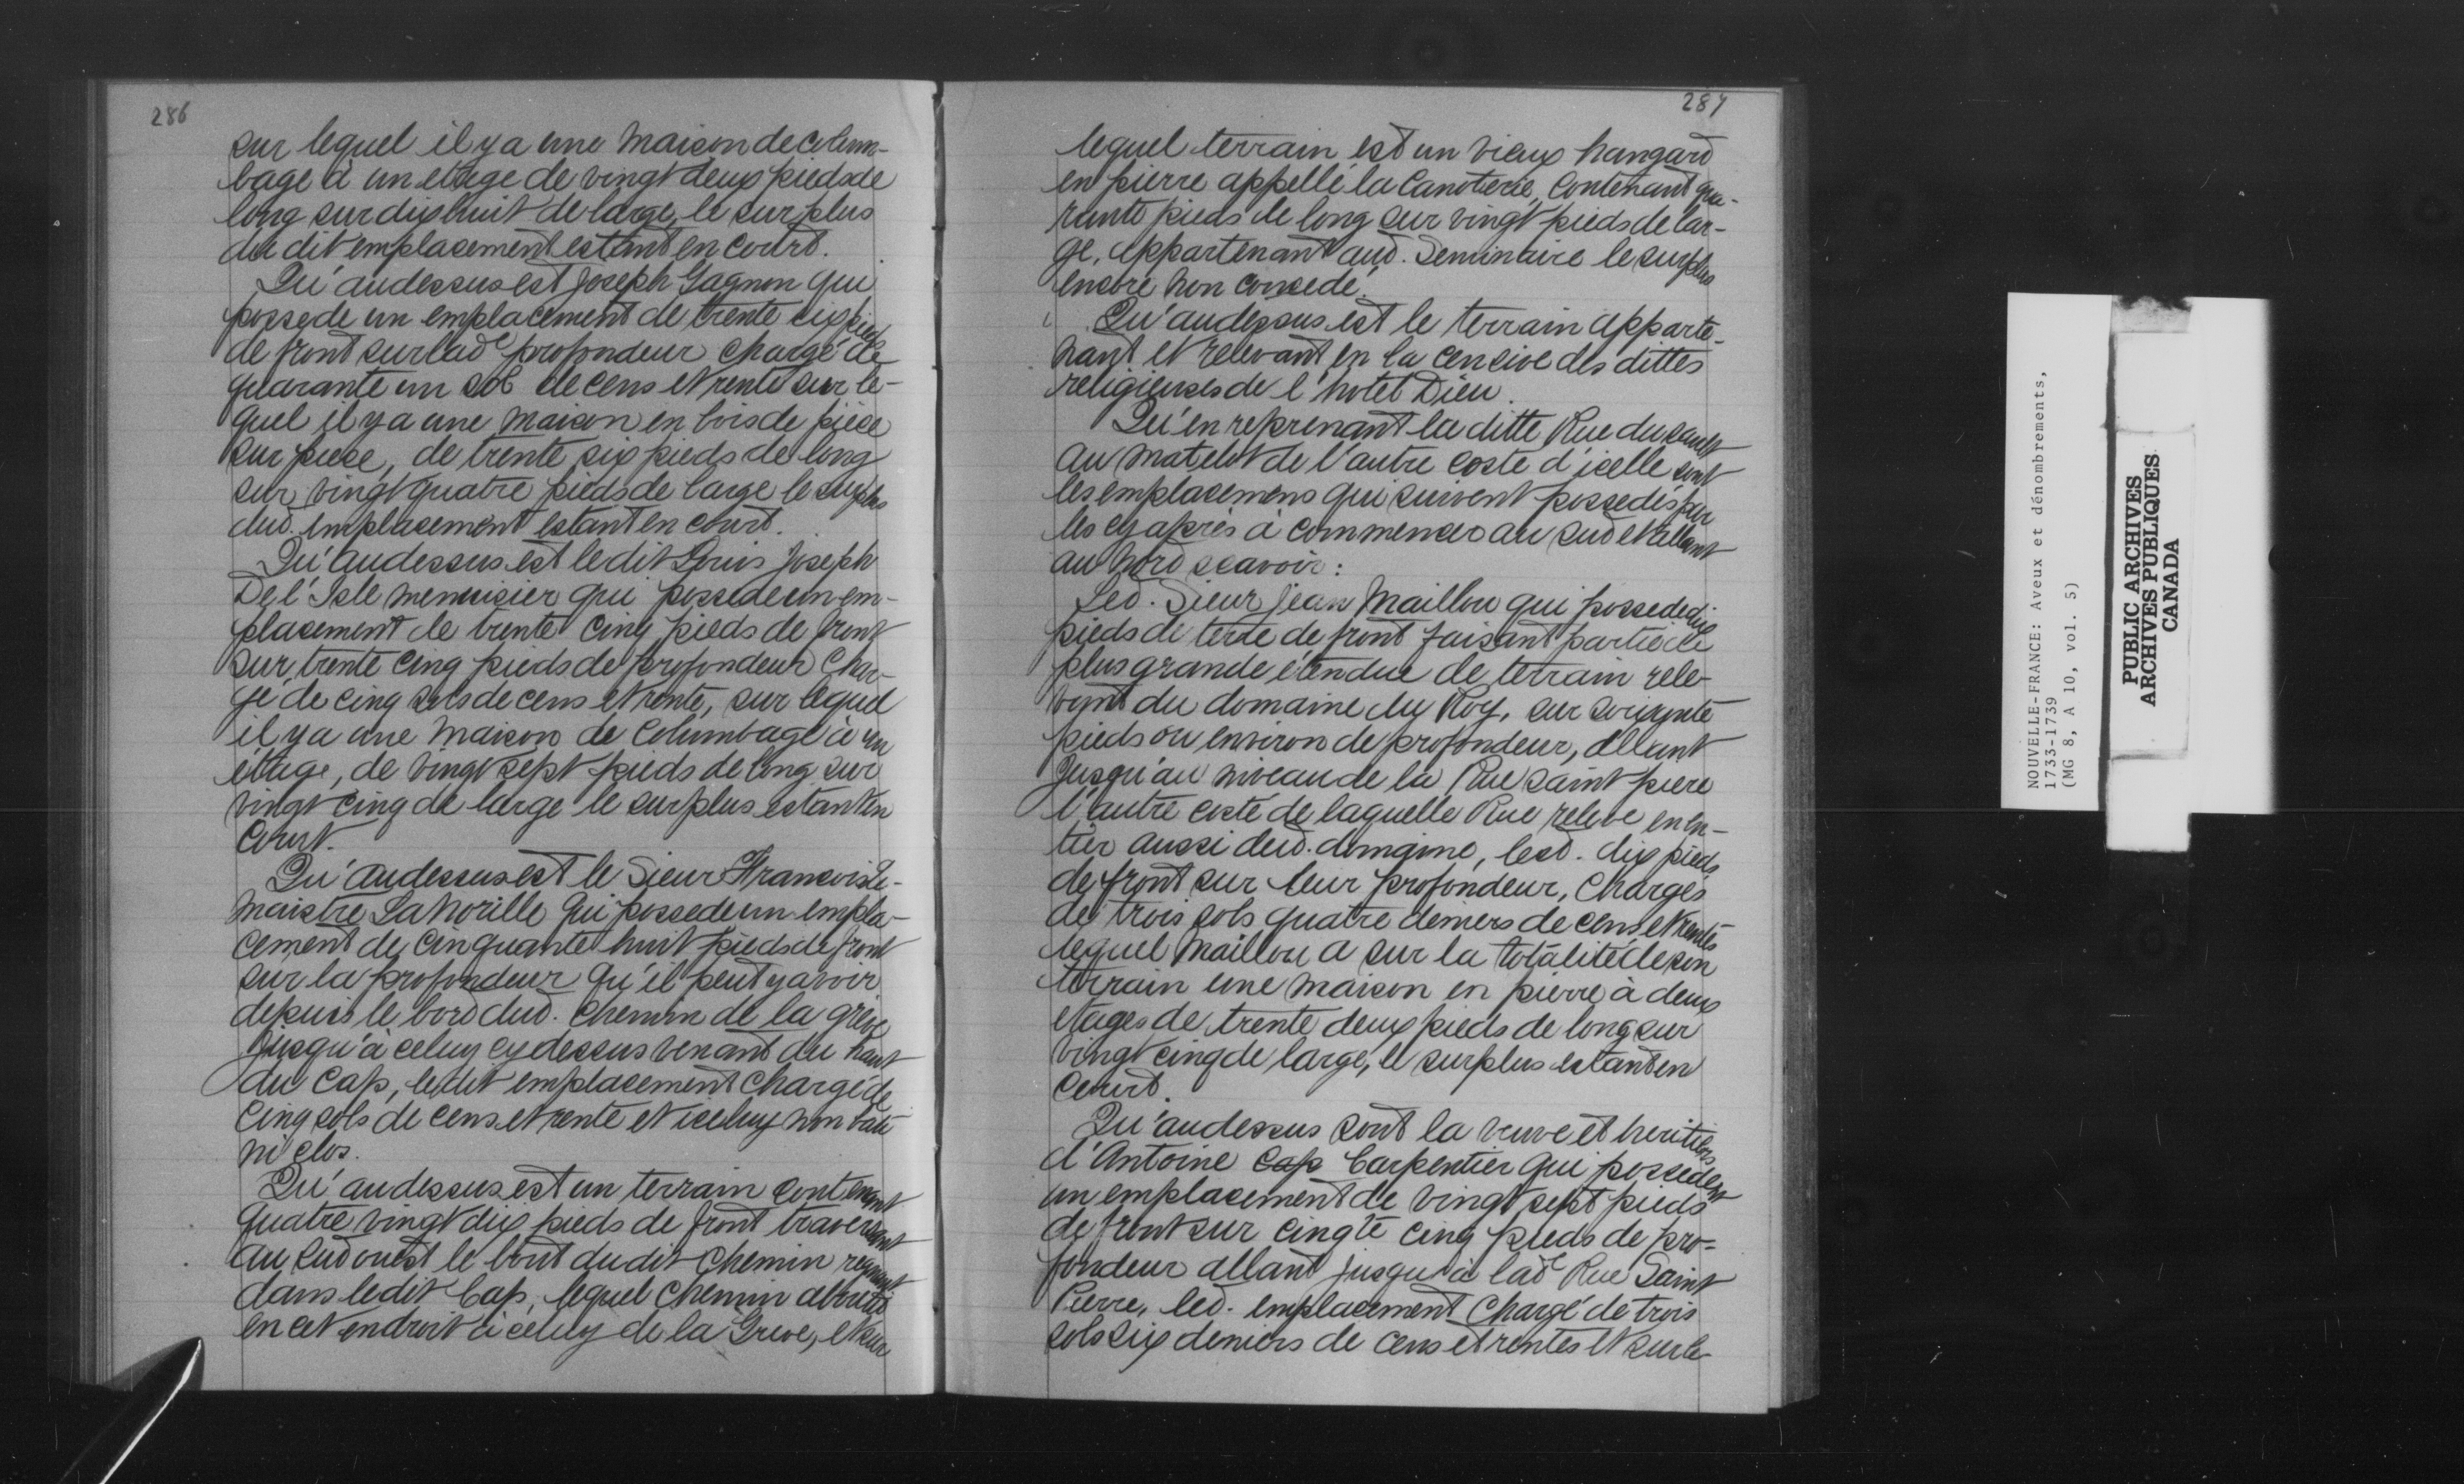 286
sur lequel il y a une Maison de colum-
bage à un etage de vingt deux pieds de
long sur dix huit de large, le surplus
du dit emplacement estant en court.
Qu'audessus est Joseph Gagnon qui
possede un emplacement de trente six pieds
de front sur lade profondeur chargé de
quarante un sol de cens et rente sur le-
quel il y a une maison en bois de piece
sur piece, de trente six pieds de long
sur vingt quatre pieds de large le surplus
dud. emplacement estant en court.
Qu'audessus est ledit Louis Joseph
De l'Isle menuisier qui possede un em-
placement de trente cinq pieds de front
sur trente cinq pieds de profondeur Char-
gé de cinq sols de cens et rente, sur lequel
il y a une Maison de Columbage à un
étage, de vingt sept pieds de long sur
vingt cinq de large le surplus estant en
Court.
Qu'audessus est le Sieur Francois Le-
maistre Lamorille qui possede un empla-
cement de cinquante huit pieds de front
sur la profondeur qu'il peut y avoir
depuis le bord dud. chemin de la grève
Jusqu'à celuy cy dessus venant du haut
du Cap, ledit emplacement chargé de
Cinq sols de cens et rente et iceluy non bati
ni clos.
Qu'audessus est un terrain contenant
quatre vingt dix pieds de front traversant
au sud ouest le bout du dit Chemin regnant
dans ledit Cap, lequel Chemin aboutit
en cet endroit à celuy de la Greve, et sur
287
lequel terrain est un vieux hangard
en pierre appellé la Canoterie, Contenant qua-
rante pieds de long sur vingt pieds de lar-
ge, appartenant aud. Seminaire le surplus
encore non concedé.
Qu'audessus est le terrain apparte-
nant et relevant en la censive des dittes
religieuses de l'hotel Dieu.
Qu'en reprenant la ditte Rue du sault
au matelot de l'autre coste d'icelle sont
les emplacemens qui suivent possedés par
les cy après à commencer au sud et allant
au Nord scavoir:
Led. Sieur Jean Maillou qui possede dix
pieds de terre de front faisant partie de
plus grande étendue de terrain rele-
vant du domaine du Roy, sur soixante
pieds ou environ de profondeur, allant
Jusqu'au niveau de la Rue saint piere
l'autre costé de laquelle Rue releve en en-
tier aussi dud. domaine, lesd. dix pieds
de front sur leur profondeur, Chargés
de trois sols quatre deniers de cens et rentes
lequel Maillou a sur la totalité de son
terrain une maison en pierre à deux
etages de trente deux pieds de long sur
vingt cinq de large, le surplus estant en
Court.
Qu'audessus sont la veuve et heritiers
d'Antoine Cap Carpentier qui possedent
un emplacement de vingt sept pieds
de front sur cinqte cinq pieds de pro-
fondeur allant jusqu'à lade Rue Saint
Pierre, led. emplacement Chargé de trois
sols six deniers de cens et rentes et sur le-
NOUVELLE-FRANCE: Aveux et dénombrements,
1733-1739
(MG 8, A 10, vol. 5)
PUBLIC ARCHIVES
ARCHIVES PUBLIQUES
CANADA